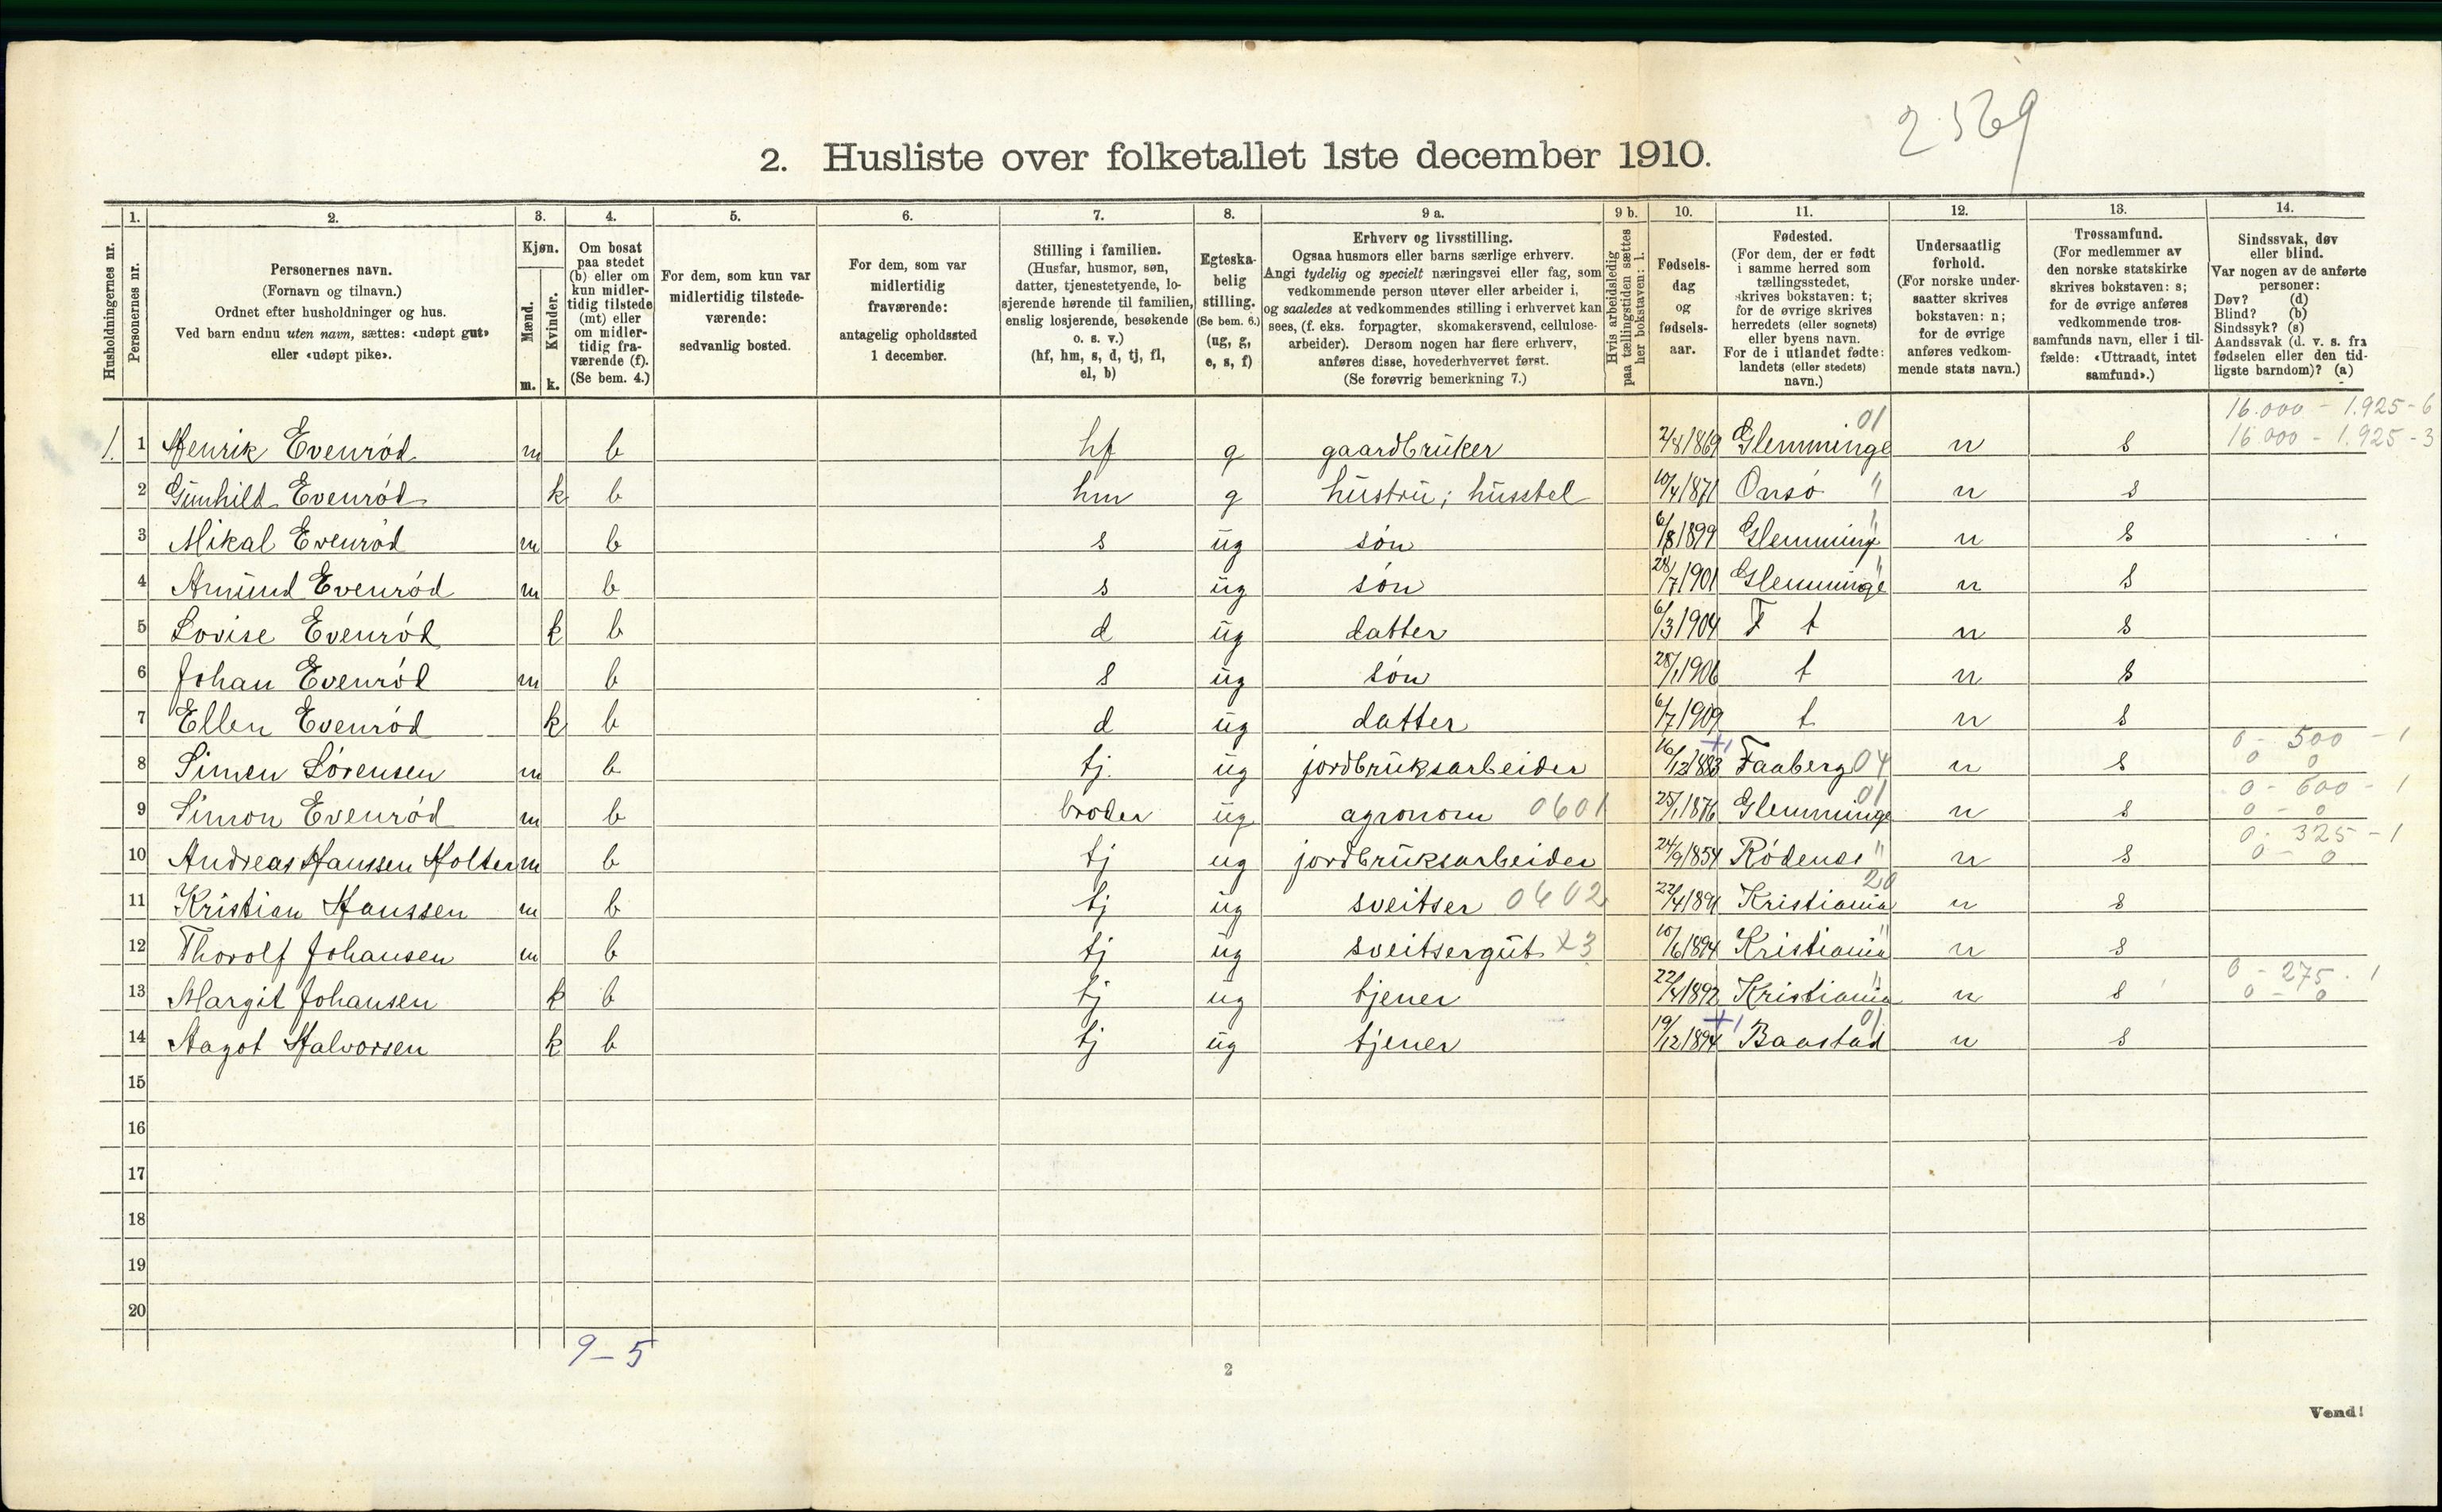 2569
2. Husliste over folketallet 1ste december 1910.
1. 2. 3. 4. 5. 6. 7. 8. 9 a. 9 b. 10. 11. 12. 13. 14.
Husholdningernes nr.
Personernes nr.
Personernes navn.
(Fornavn og tilnavn.)
Ordnet efter husholdninger og hus.
Ved barn endnu uten navn, sættes: «udøpt gut»
eller «udøpt pike».
Kjøn.
Mænd.
Kvinder.
m. k.
Om bosat
paa stedet
(b) eller om
kun midler-
tidig tilstede
(mt) eller
om midler-
tidig fra-
værende (f).
(Se bem. 4.)
For dem, som kun var
midlertidig tilstede-
værende:
sedvanlig bosted.
For dem, som var
midlertidig
fraværende:
antagelig opholdssted
1 december.
Stilling i familien.
(Husfar, husmor, søn,
datter, tjenestetyende, lo-
sjerende hørende til familien,
enslig losjerende, besøkende
o. s. v.)
(hf, hm, s, d, tj, fl,
el, b)
Egteska-
belig
stilling.
(Se bem. 6.)
(ug, g,
e, s, f)
Erhverv og livsstilling.
Ogsaa husmors eller barns særlige erhverv.
Angi tydelig og specielt næringsvei eller fag, som
vedkommende person utøver eller arbeider i,
og saaledes at vedkommendes stilling i erhvervet kan
sees, (f. eks. forpagter, skomakersvend, cellulose-
arbeider). Dersom nogen har flere erhverv,
anføres disse, hovederhvervet først.
(Se forøvrig bemerkning 7.)
Hvis arbeidsledig
paa tællingstiden sættes
her bokstaven: l.
Fødsels-
dag
og
fødsels-
aar.
Fødested.
(For dem, der er født
i samme herred som
tællingsstedet,
skrives bokstaven: t;
for de øvrige skrives
herredets (eller sognets)
eller byens navn.
For de i utlandet fødte:
landets (eller stedets)
navn.)
Undersaatlig
forhold.
(For norske under-
saatter skrives
bokstaven: n;
for de øvrige
anføres vedkom-
mende stats navn.)
Trossamfund.
(For medlemmer av
den norske statskirke
skrives bokstaven: s;
for de øvrige anføres
vedkommende tros-
samfunds navn, eller i til-
fælde: «Uttraadt, intet
samfund».)
Sindssvak, døv
eller blind.
Var nogen av de anførte
personer:
Døv? (d)
Blind? (b)
Sindssyk? (s)
Aandssvak (d. v. s. fra
fødselen eller den tid-
ligste barndom)? (a)
01 16.000 - 1.925-6
1. 1 Henrik Evenrød m b hf g gaardbruker 2/8 1869 Glemminge n s 16.000 - 1.925-3
2 Gunhild Evenrød k b hm g hustru; husstel 10/4 1871 Onsø " n s
3 Mikal Evenrød m b s ug søn 6/8 1899 Glemming " n s
4 Amund Evenrød m b s ug søn 28/7 1901 Glemminge " n s
5 Lovise Evenrød k b d ug datter 6/3 1904 t n s
6 Johan Evenrød m b s ug søn 28/1 1906 t n s
7 Ellen Evenrød k b d ug datter 6/7 1909 t n s
+1 0 - 500 - 1
8 Simen Sørensen m b tj. ug jordbruksarbeider 16/12 1883 Faaberg 04 n s 0 0
01 0 - 600 - 1
9 Simon Evenrød m b broder ug agronom 0601 25/1 1876 Glemminge n s 0 - 0
0 - 325 - 1
10 Andreas Hanssen Holter m b tj ug jordbruksarbeider 24/9 1854 Rødenes " n s 0 - 0
20
11 Kristian Hanssen m b tj ug sveitser 0602 22/4 1891 Kristiania n s
12 Thorolf Johansen m b tj ug sveitsergut x3 10/6 1894 Kristiania " n s
0 - 275 - 1
13 Margit Johansen k b tj ug tjener 22/4 1892 Kristiania " n s 0 - 0
+1 01
14 Aagot Halvorsen k b tj ug tjener 19/12 1894 Baastad n s
15
16
17
18
19
20
9-5
2
Vend!